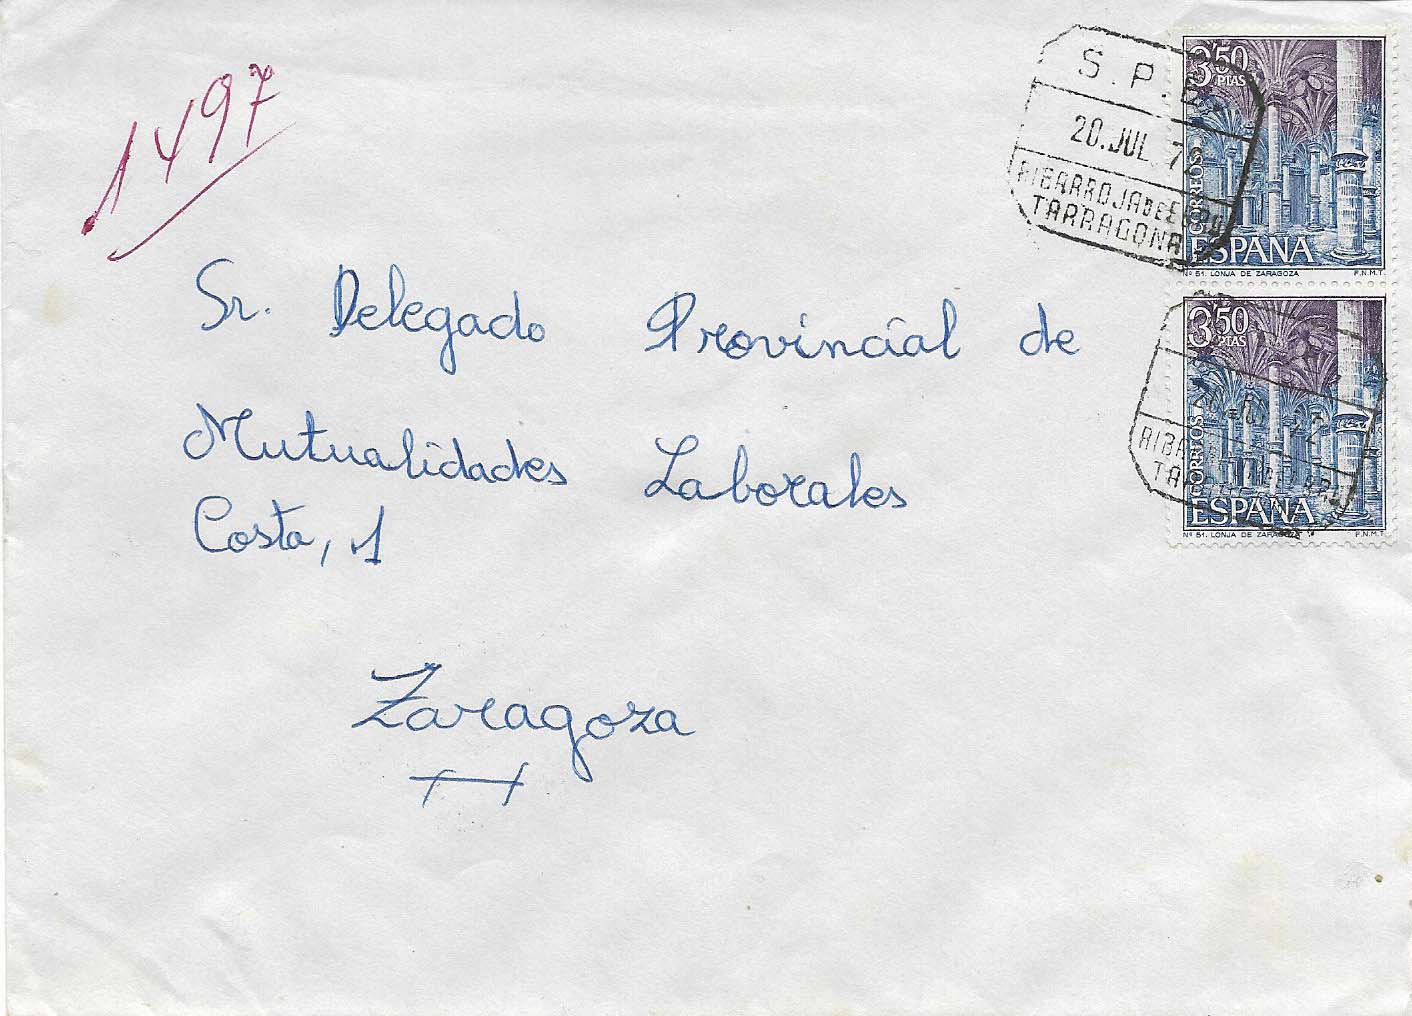 1497
S.P.
20.JUL.72
RIBARROJA DE EBRO
TARRAGONA
3'50
PTAS
CORREOS
ESPAÑA
Nº 51. LONJA DE ZARAGOZA
F.N.M.T.
3'50
PTAS
CORREOS
ESPAÑA
Nº 51. LONJA DE ZARAGOZA
F.N.M.T.
Sr. Delegado Provincial de
Mutualidades Laborales
Costa, 1
Zaragoza